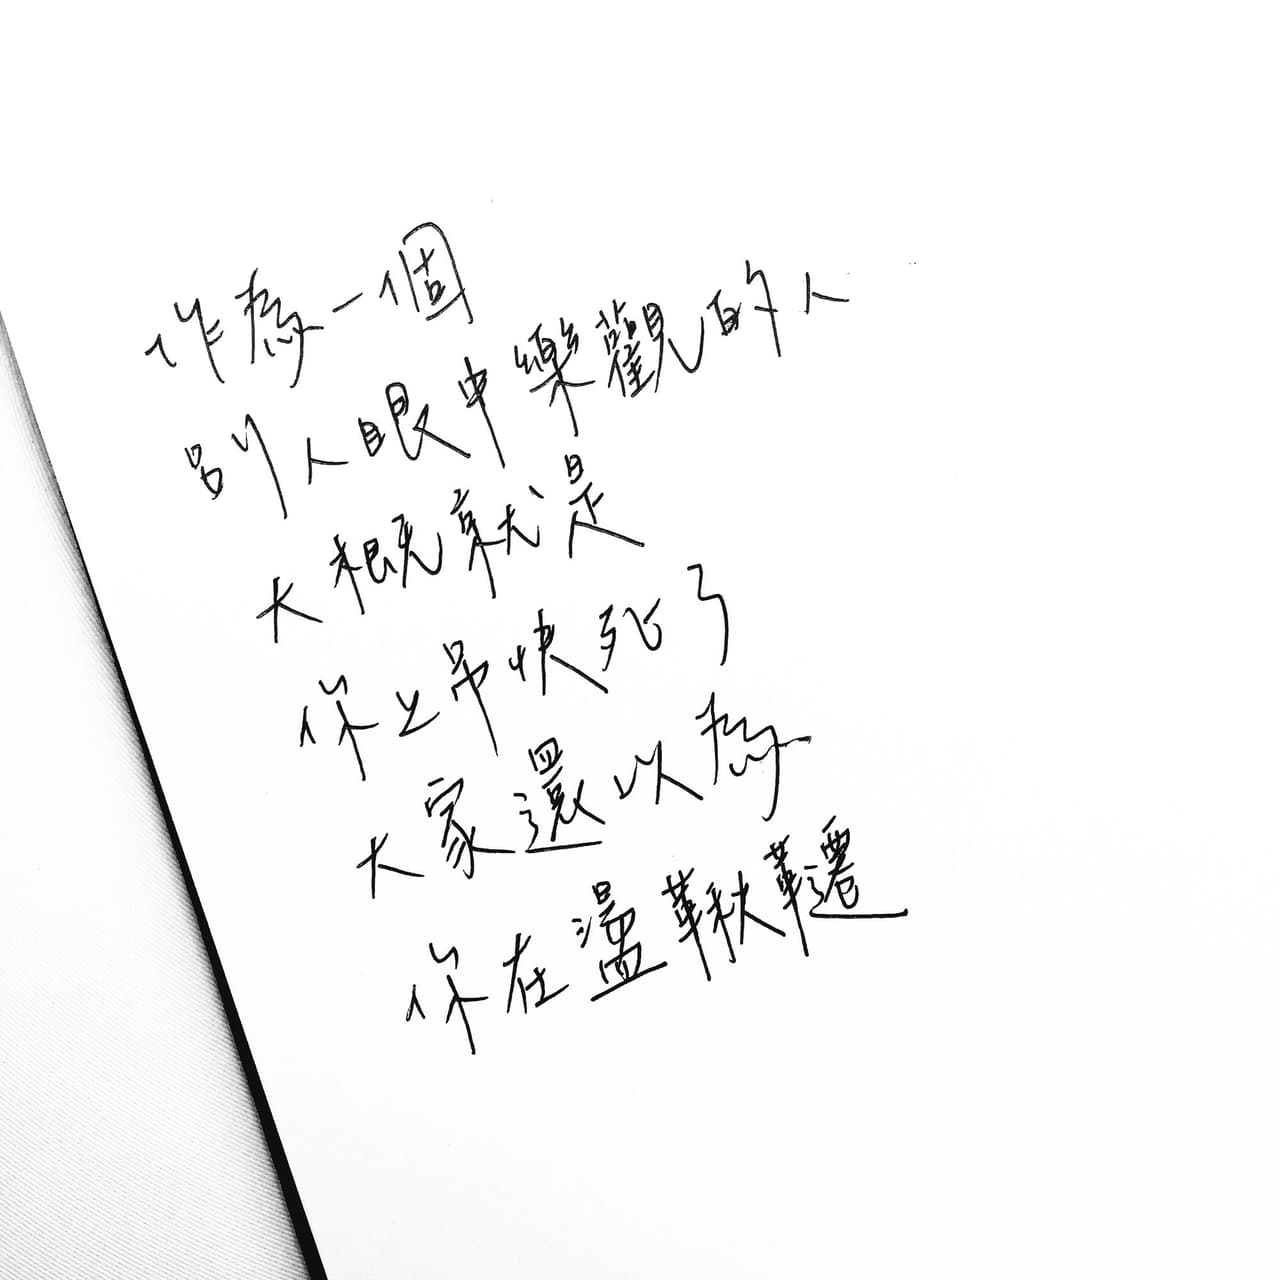 作為一個
別人眼中樂觀的人
大概就是
你上吊快死了
大家還以為
你在盪鞦韆